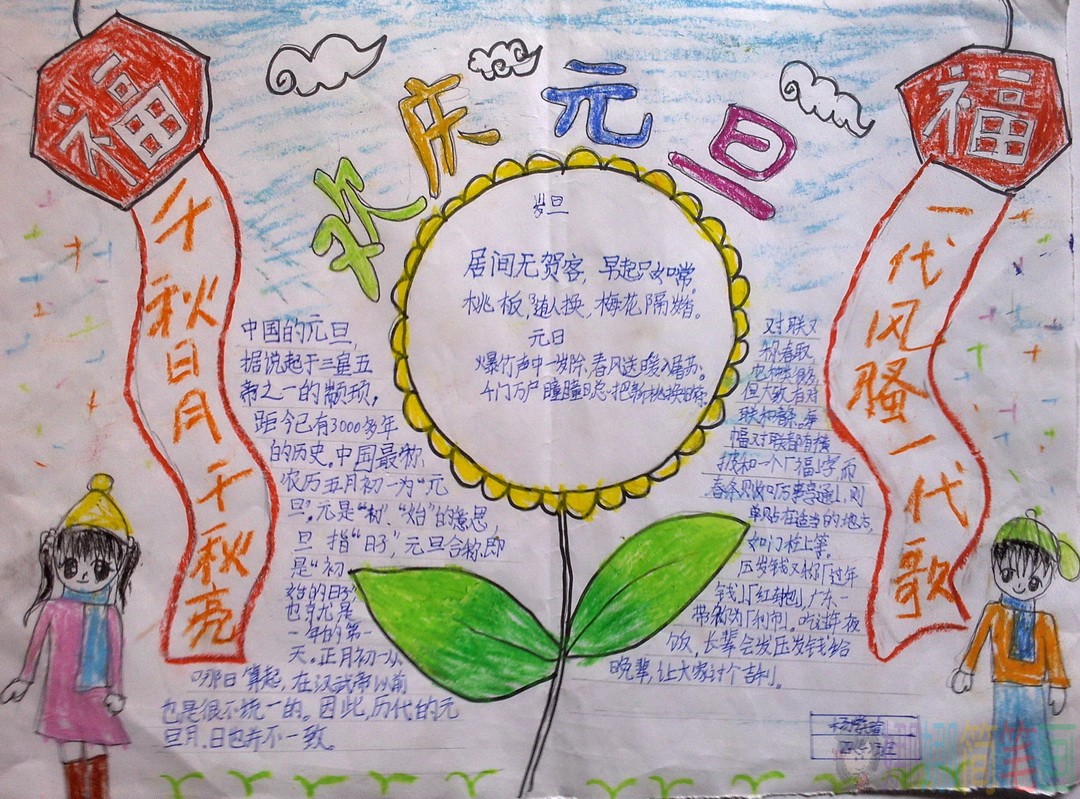 欢庆元旦
福
千秋日月千秋亮
福
一代风骚一代歌
岁旦
居间无贺客，早起只如常。
桃板随人换，梅花隔岁。
元日
爆竹声中一岁除，春风送暖入屠苏。
千门万户瞳瞳日，总把新桃换旧符。
中国的元旦，
据说起于三皇五
帝之一的颛顼，
距今已有3000多年
的历史。中国最称
农历五月初一为“元
旦”。元是“初”、“始”的意思，
旦指“日子”，元旦合称即
是“初
始的日子”
也就是
一年的第一
天。正月初一从
哪日算起，在汉武帝以前
也是很不统一的。因此，历代的元
旦月、日也并不一致。
对联又
但大致有对
联和春条。每
幅对联都有横
披和一个「福」字而
春条则如「万事亨通」，则
单贴在适当的地方，
如门柱上等。
压岁钱又称「过年
钱」「红封包」，广东一
带称为「利市」。吃过年夜
饭，长辈会发压岁钱给
晚辈，让大家讨个吉利。